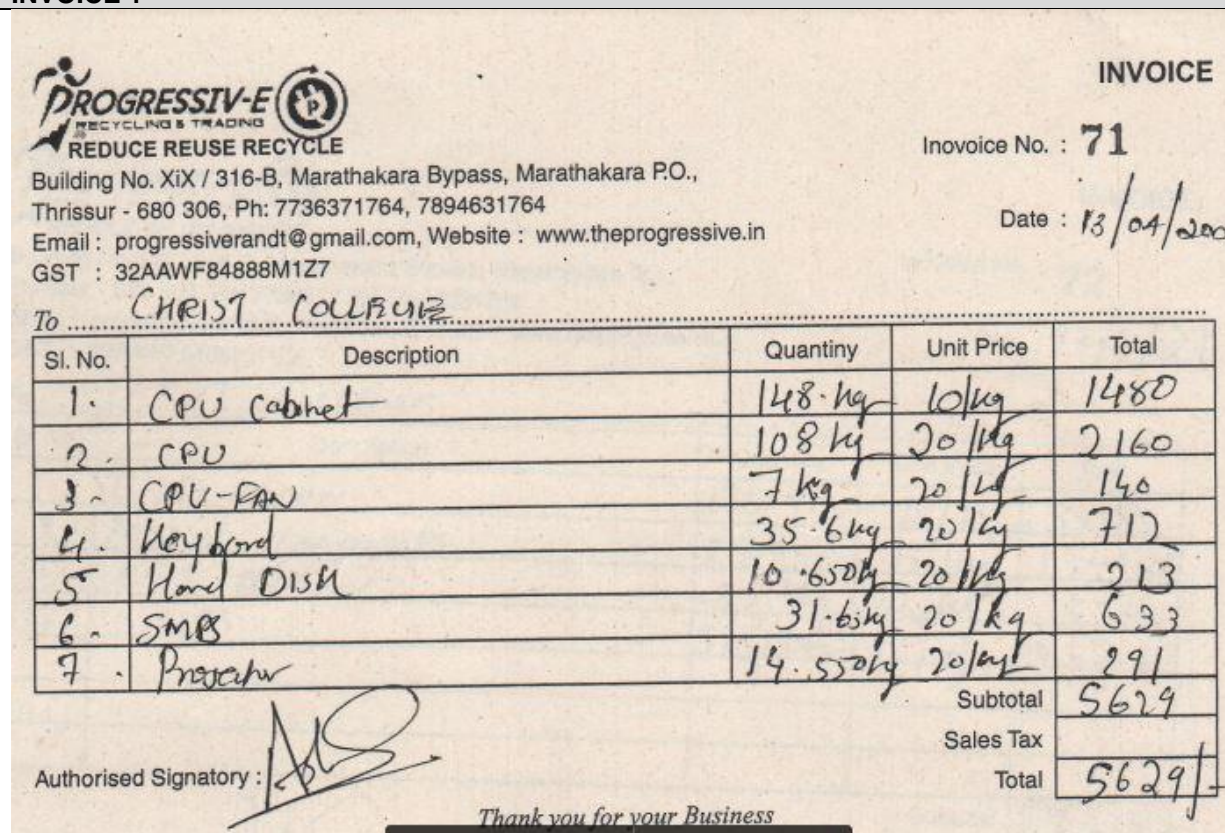 INVOICE
PROGRESSIV-E
RECYCLING & TRADING
REDUCE REUSE RECYCLE
Inovoice No. : 71
Building No. XiX / 316-B, Marathakara Bypass, Marathakara P.O.,
Thrissur - 680 306, Ph: 7736371764, 7894631764
Date : 13/04/200
Email : progressiverandt@gmail.com, Website : www.theprogressive.in
GST : 32AAWF84888M1Z7
To CHRIST COLLEGE
Sl. No. Description Quantiny Unit Price Total
1. CPU Cabinet 148.kg 10/kg 1480
2. CPU 108 kg 20/kg 2160
3- CPU-FAN 7 kg 20/kg 140
4. Keybord 35.6kg 20/kg 712
5 Hard DISK 10.650kg 20/kg 213
6- SMPS 31.65kg 20/kg 633
7. Projector 14.550kg 20/kg 291
Subtotal 5629
Sales Tax
Total 5629/-
Authorised Signatory :
Thank you for your Business